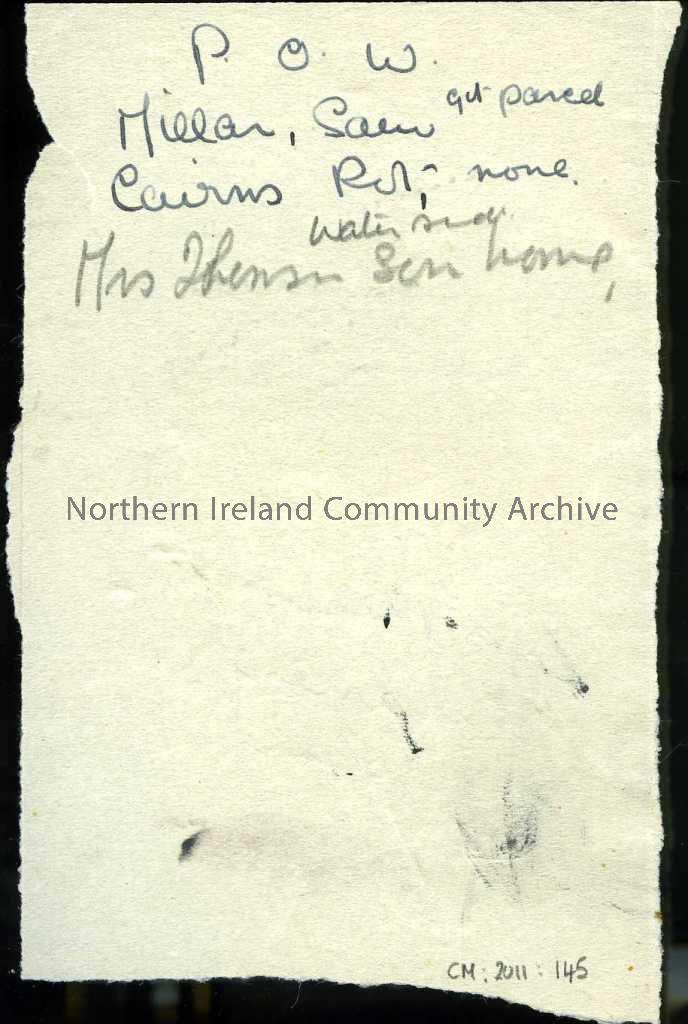 P. O. W.
Millar, Sam got parcel
Cairns Rob, none.
Waterside
Mrs Son home,
Northern Ireland Community Archive
CM: 2011: 145